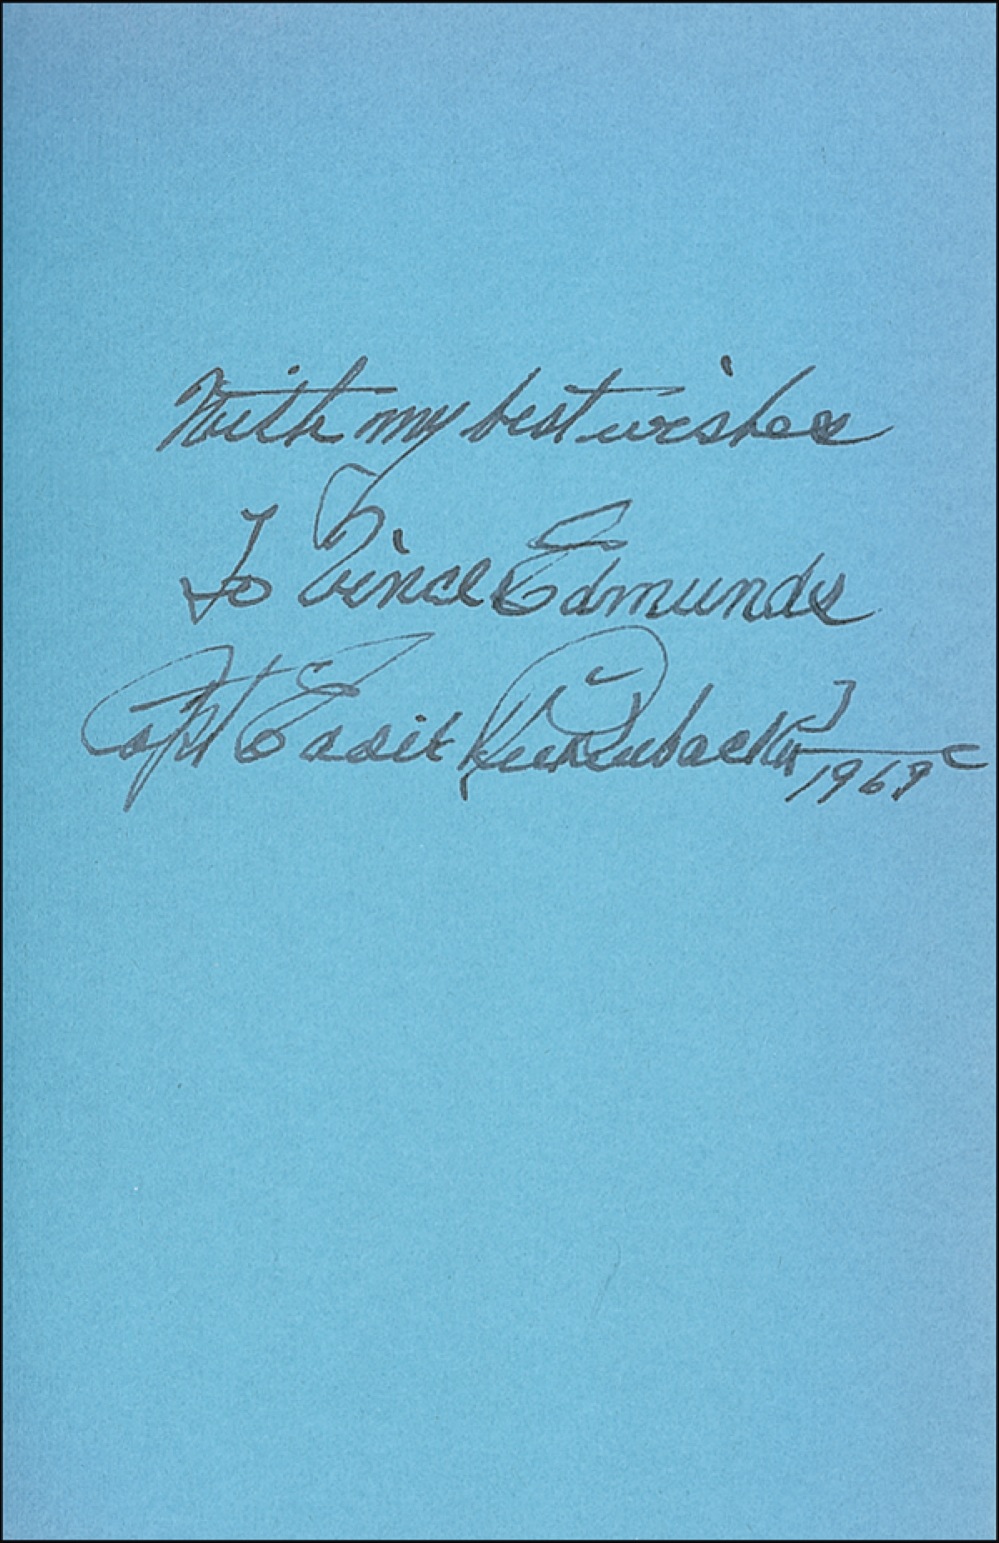 With my best wishes
To Vince Edmunds
Capt Eddie Rickenbacker
1969